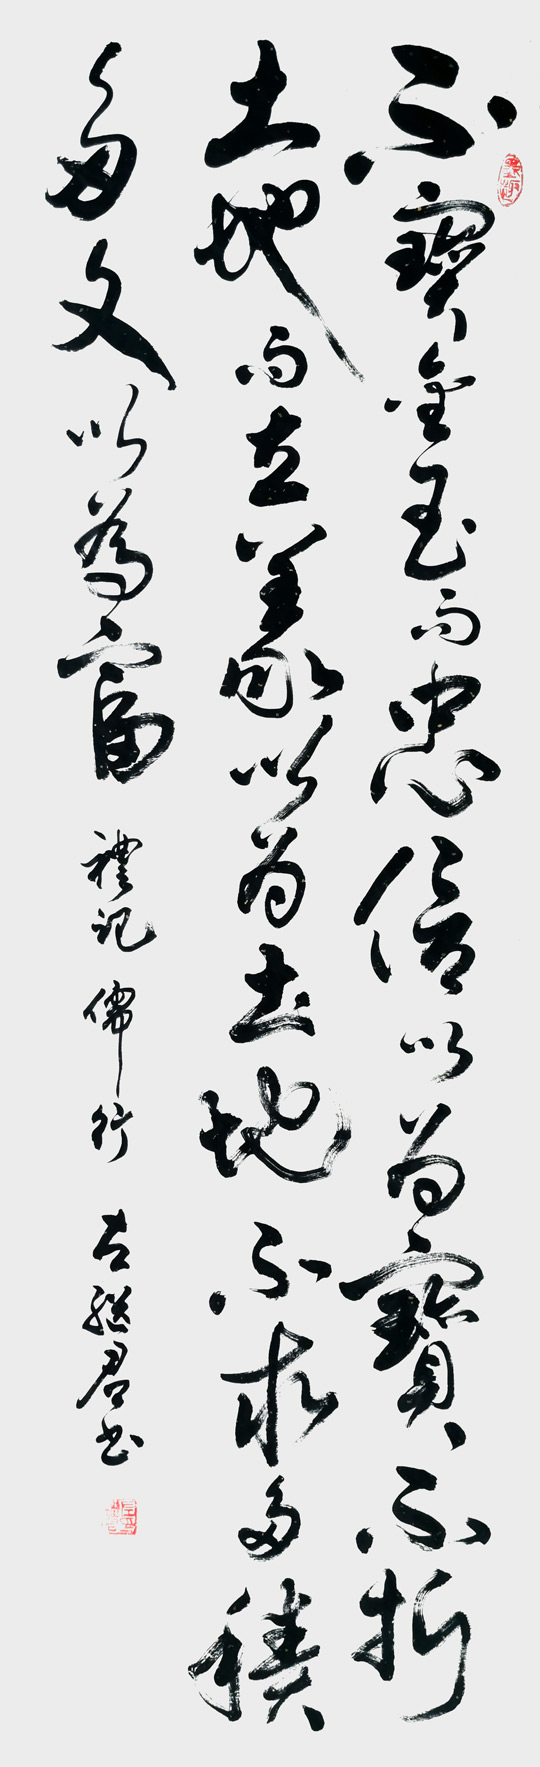 不寶金玉而忠信以为寶不祈
土地而立義以为土地不求多積
多文以為富 禮記 儒行 左继君书